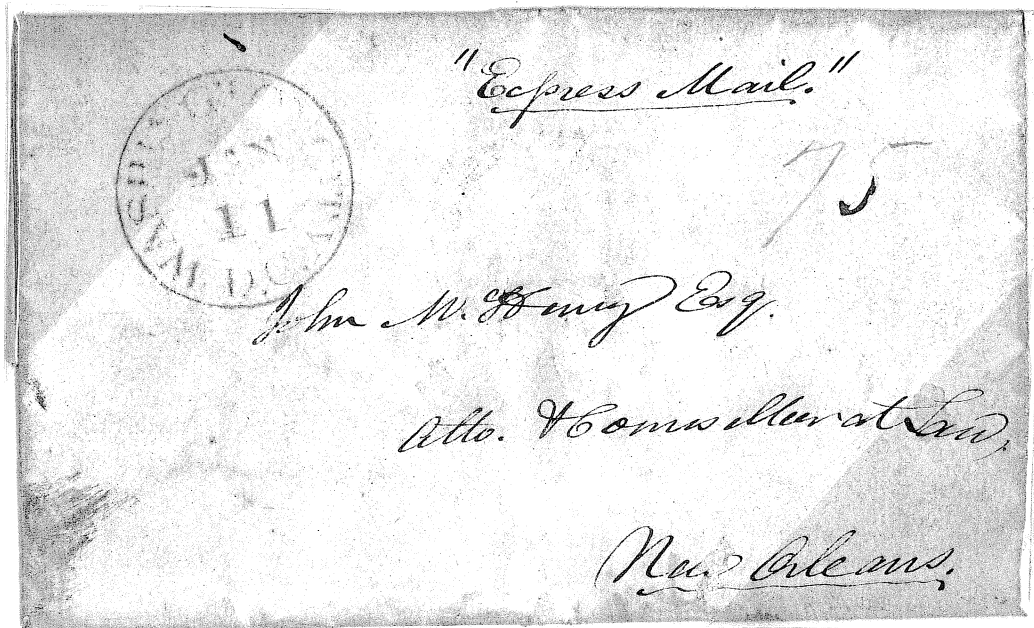 "Express Mail."
WASHINGTON CITY D.C.
JAN
11
75
John McHenry Esq.
Atto. & Counsellor at Law,
New Orleans.